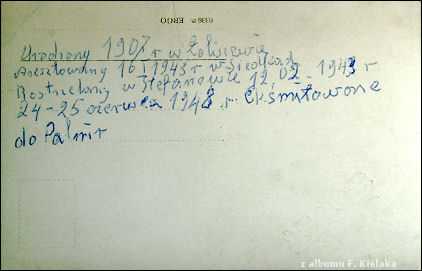 0336 ERGO
Urodzony 1907 r w
Aresztowany 16 I 1943 r w Siedlcach
Rostrzelany w Stefanowie 12.02-1943
24-25 czerwca 1948 r.
do Palmir
z albumu F. Kielaka